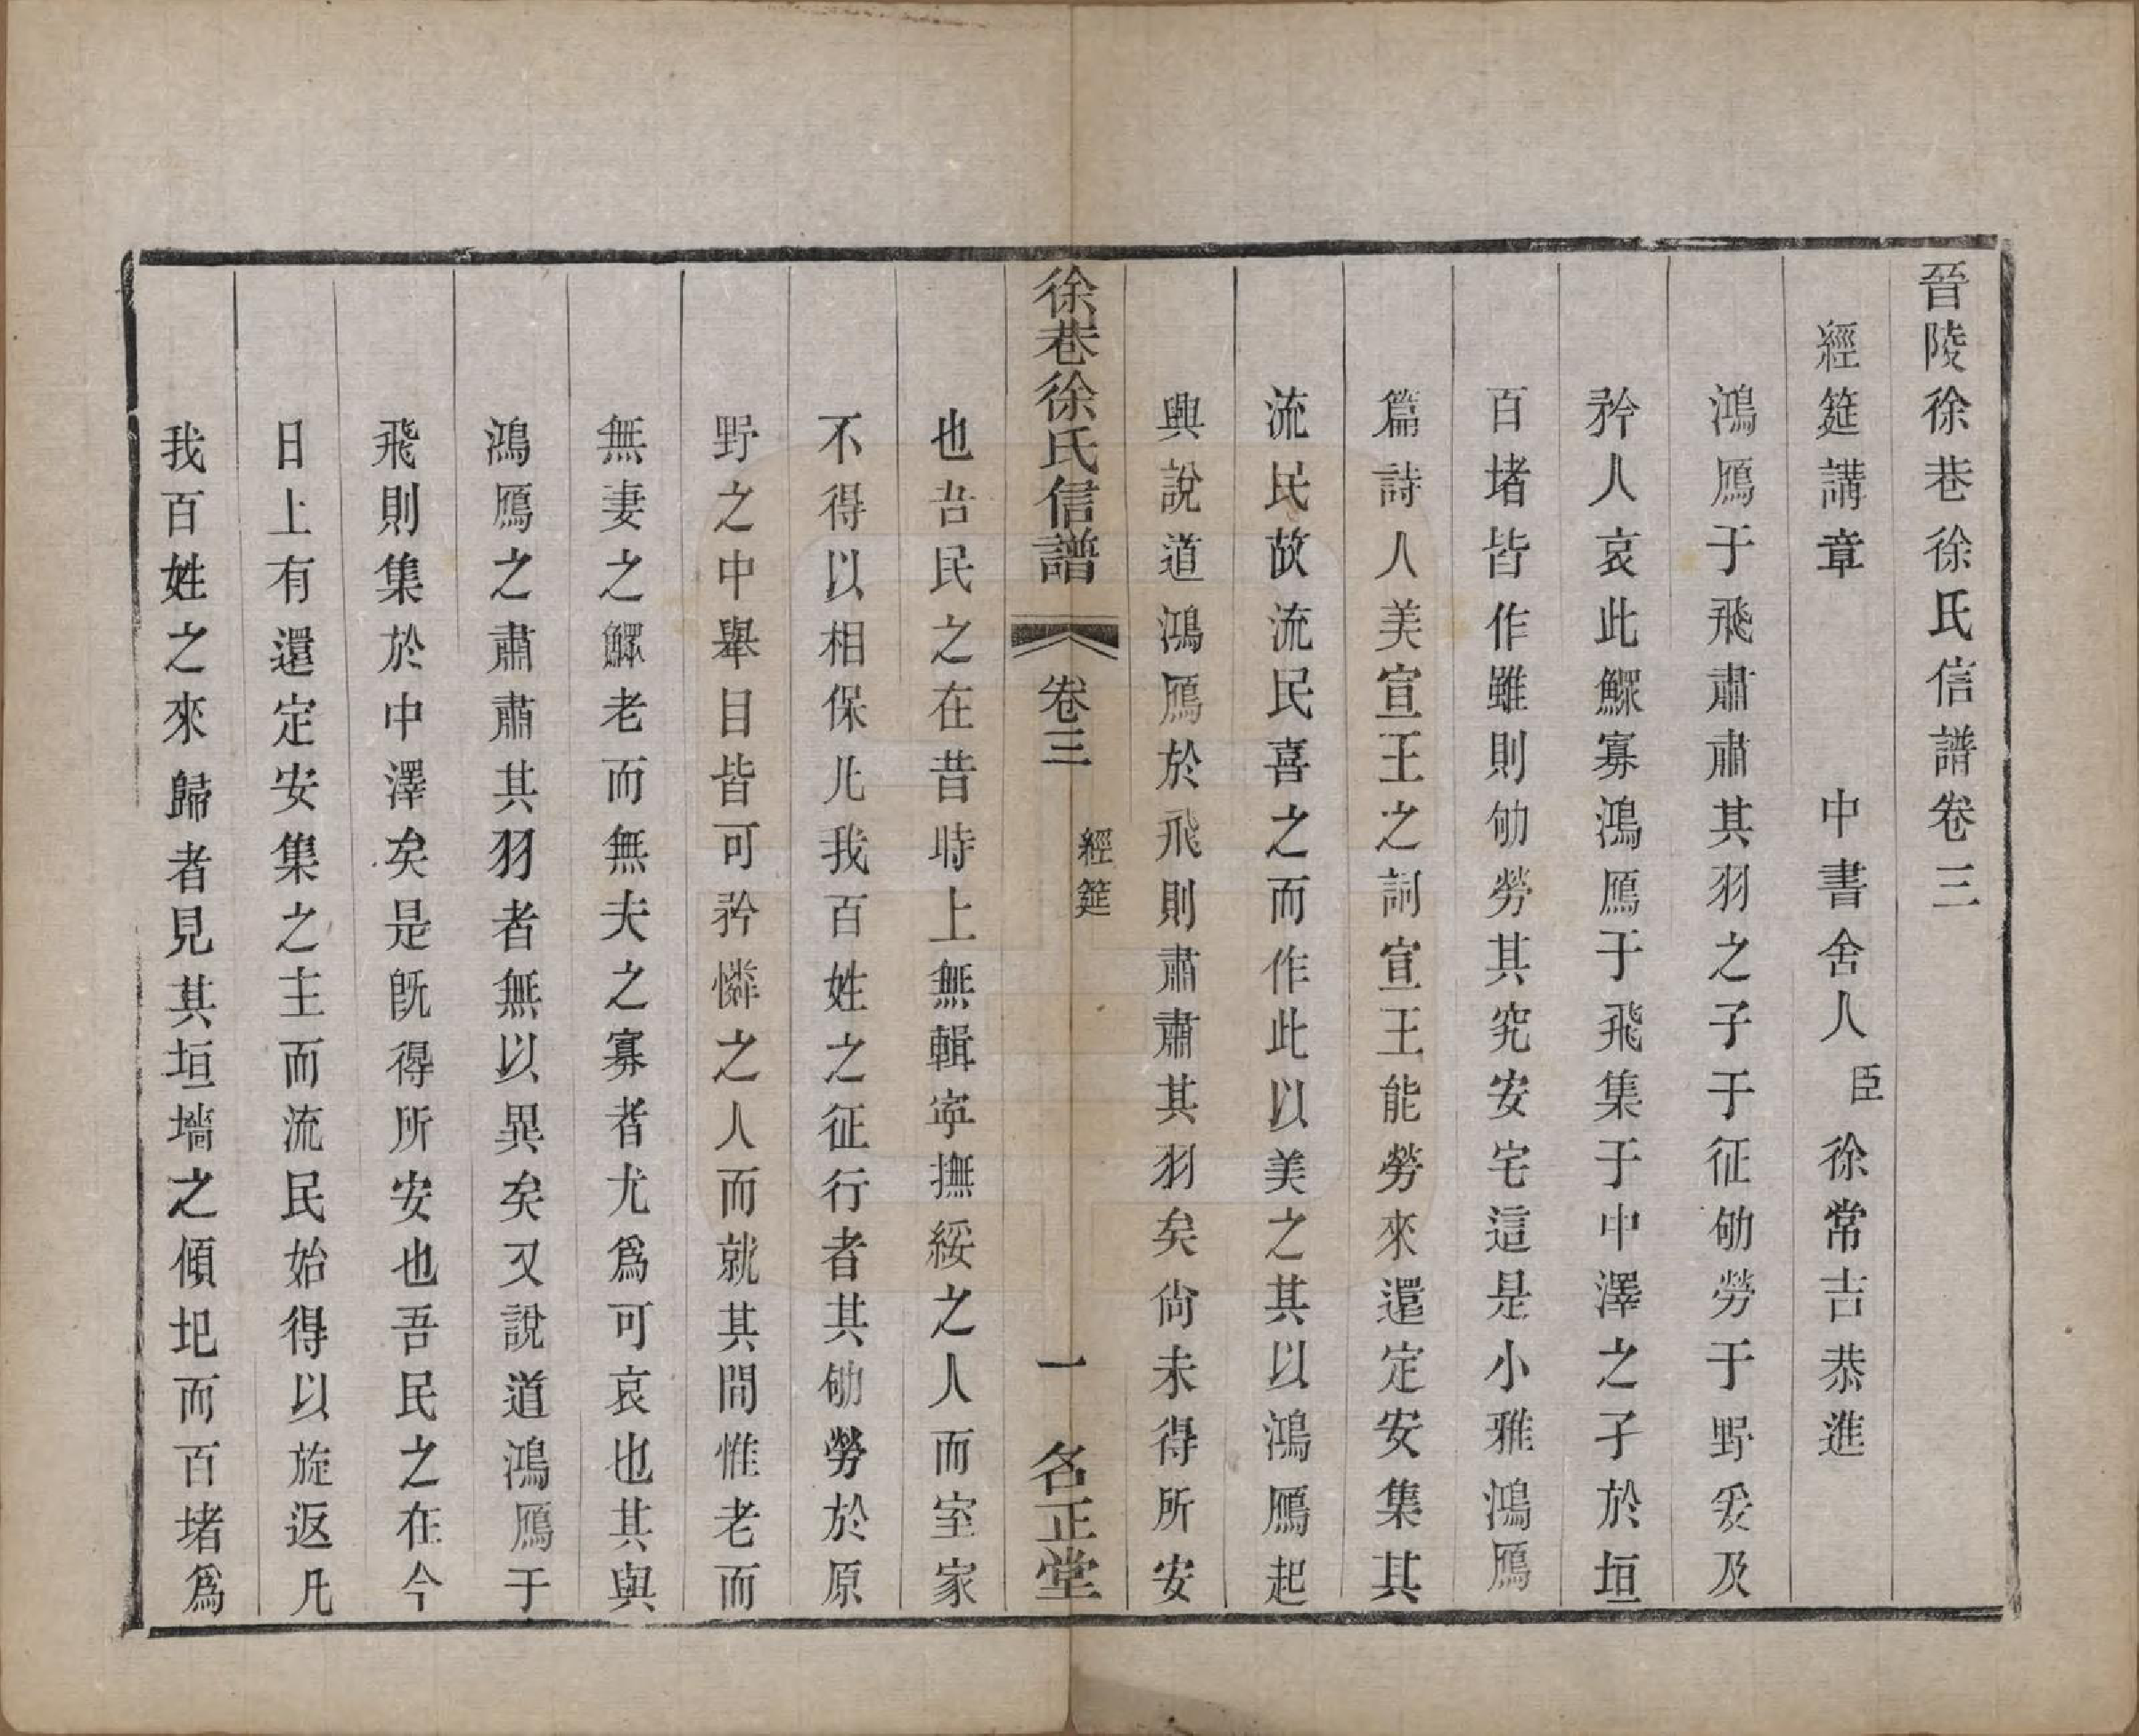 晉陵徐巷徐氏信譜卷三
經筵講章 中書舍人臣徐常吉恭進
鴻鴈于飛肅肅其羽之子于征劬勞于野爰及
矜人哀此鰥寡鴻鴈于飛集于中澤之子於垣
百堵皆作雖則劬勞其究安宅這是小雅鴻鴈
篇詩人美宣王之詞宣王能勞來還定安集其
流民故流民喜之而作此以美之其以鴻鴈起
興說道鴻鴈於飛則肅肅其羽矣尙未得所安
徐巷徐氏信譜 卷三 經筵 一 名正堂
也吾民之在昔時上無輯寧撫綏之人而室家
不得以相保凡我百姓之征行者其劬勞於原
野之中舉目皆可矜憐之人而就其間惟老而
無妻之鰥老而無夫之寡者尤爲可哀也其與
鴻鴈之肅肅其羽者無以異矣又說道鴻鴈于
飛則集於中澤矣是旣得所安也吾民之在今
日上有還定安集之主而流民始得以旋返凡
我百姓之來歸者見其垣墻之傾圯而百堵爲